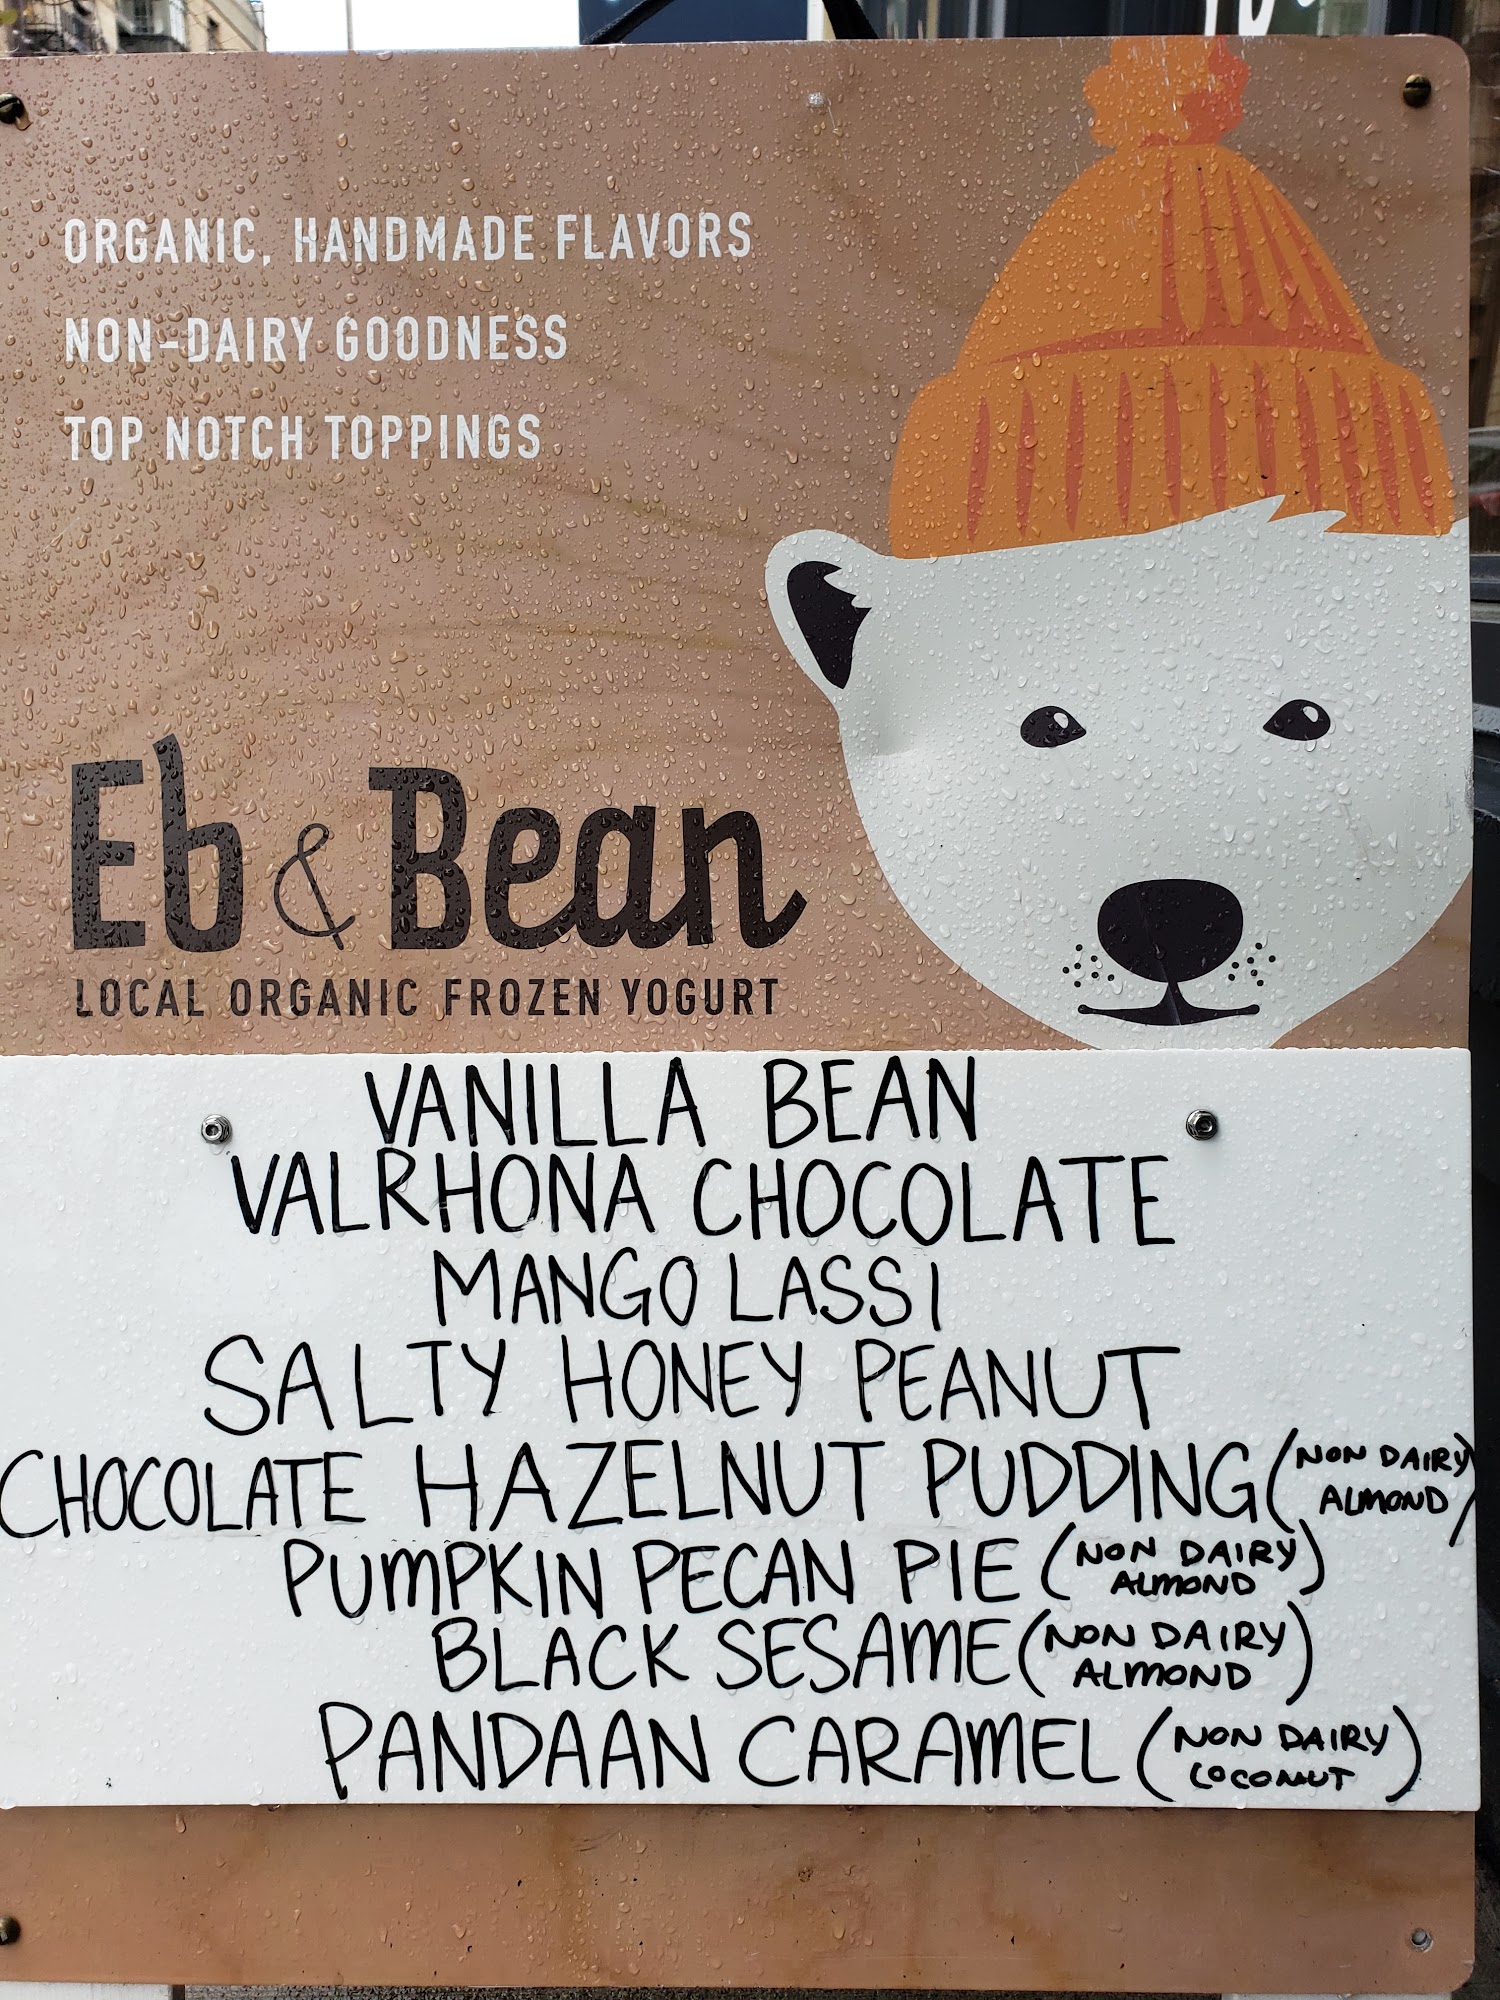 ORGANIC, HANDMADE FLAVORS
NON-DAIRY GOODNESS
TOP NOTCH TOPPINGS
Eb & Bean
LOCAL ORGANIC FROZEN YOGURT
VANILLA BEAN
VALRHONA CHOCOLATE
MANGO LASSI
SALTY HONEY PEANUT
CHOCOLATE HAZELNUT PUDDING (NON DAIRY
ALMOND)
PUMPKIN PECAN PIE (NON DAIRY
ALMOND)
BLACK SESAME (NON DAIRY
ALMOND)
PANDAAN CARAMEL (NON DAIRY
COCONUT)